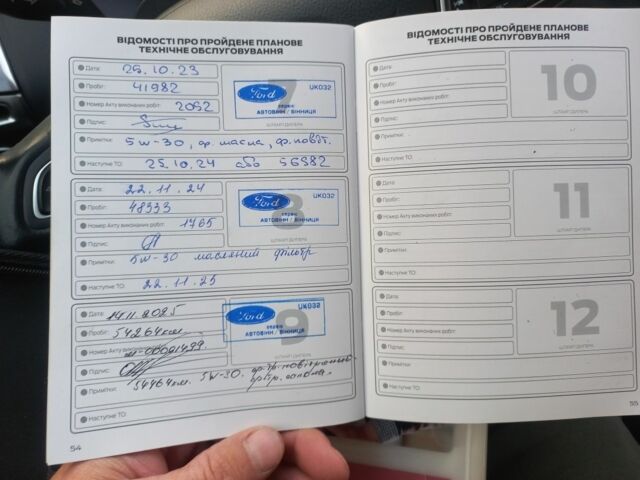 ВІДОМОСТІ ПРО ПРОЙДЕНЕ ПЛАНОВЕ
ТЕХНІЧНЕ ОБСЛУГОВУВАННЯ
Дата: 25.10.23
Пробіг: 41982
Номер Акту виконаних робіт: 2052
Підпис:
7
Ford
UK032
сервіс
АВТОВІНН / ВІННИЦЯ
ШТАМП ДИЛЕРА
Примітки: 5w-30, ф. масла, ф. повіт.
Наступне ТО: 25.10.24 або 56982
Дата: 22.11.24
Пробіг: 48333
Номер Акту виконаних робіт: 1765
Підпис:
8
Ford
UK032
сервіс
АВТОВІНН / ВІННИЦЯ
ШТАМП ДИЛЕРА
Примітки: 5w-30 масляний фільтр
Наступне ТО: 22.11.25
Дата: 14.11.2025
Пробіг: 54264км.
Номер Акту виконаних робіт:
Підпис:
9
Ford
UK032
сервіс
АВТОВІНН / ВІННИЦЯ
Примітки: 54464км. 5W-30.
Наступне ТО:
54
ВІДОМОСТІ ПРО ПРОЙДЕНЕ ПЛАНОВЕ
ТЕХНІЧНЕ ОБСЛУГОВУВАННЯ
Дата:
Пробіг:
Номер Акту виконаних робіт:
Підпис:
10
ШТАМП ДИЛЕРА
Примітки:
Наступне ТО:
Дата:
Пробіг:
Номер Акту виконаних робіт:
Підпис:
11
ШТАМП ДИЛЕРА
Примітки:
Наступне ТО:
Дата:
Пробіг:
Номер Акту виконаних робіт:
Підпис:
12
ШТАМП ДИЛЕРА
Примітки:
Наступне ТО:
55